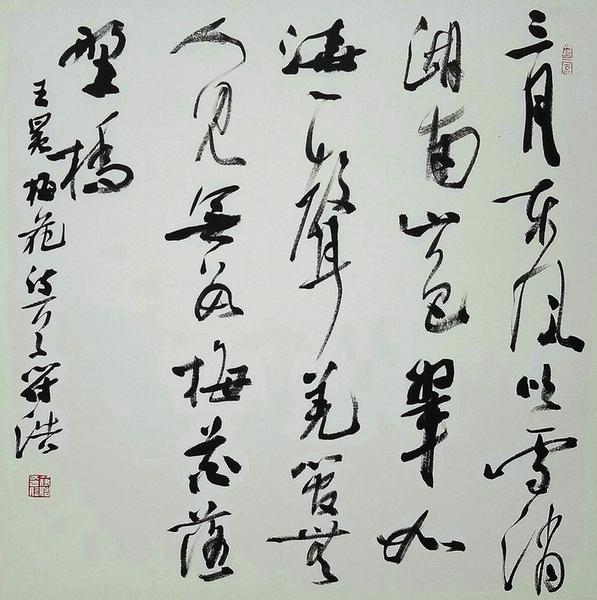 三月东风吹雪消
湖南山色翠如
浇一聲羌管無
人见无数梅花落
野橋
王冕梅花诗